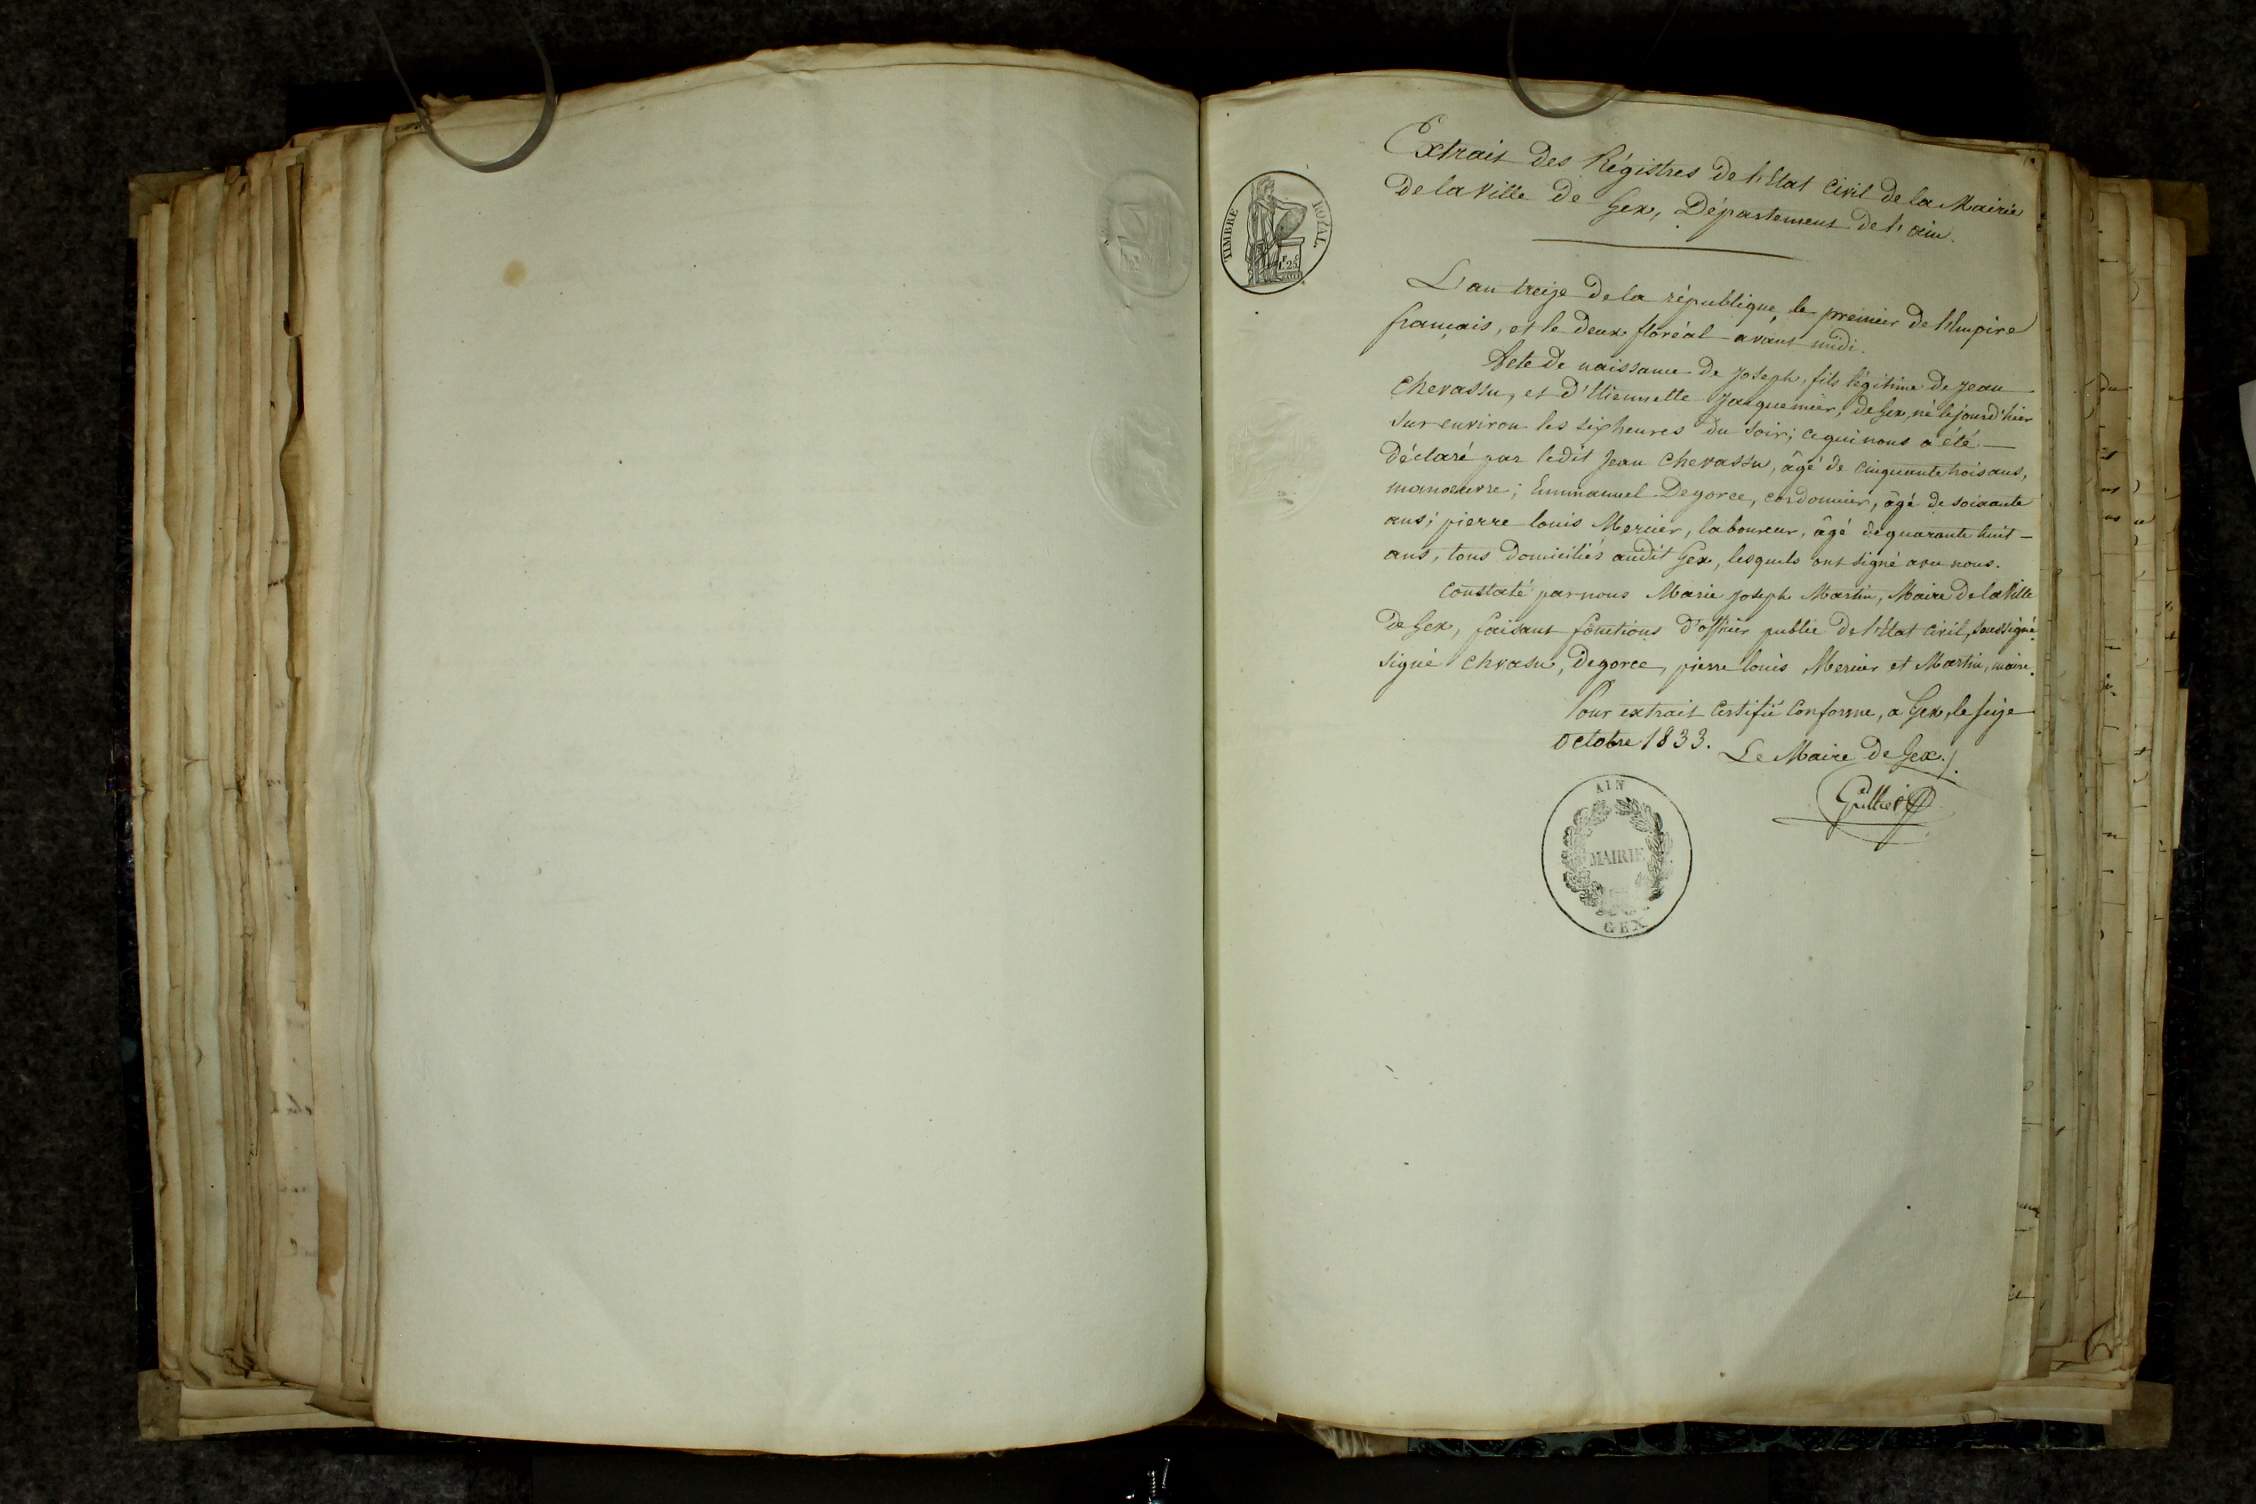 TIMBRE ROYAL
1F.25C
Extrait des Régistres de l'Etat Civil de la Mairie
de la Ville de Gex, Département de l'ain.
L'an treize de la république, le premier de l'Empire
français, et le deux floréal avant midi.
Acte de naissance de Joseph, fils légitime de Jean
Chevassu, et d'Etiennette Jacquemier, de Gex, né le jourd'hier
sur environ les six heures du soir; ce qui nous a été
déclaré par ledit Jean Chevassu, âgé de cinquante trois ans,
manoeuvre; Emmanuel Degorce, cordonnier, âgé de soixante
ans; pierre louis Mercier, laboureur, âgé de quarante huit
ans, tous domiciliés audit Gex, lesquels ont signé avec nous.
Constaté par nous Marie Joseph Martin, Maire de la Ville
de Gex, faisant fonctions d'officier public de l'Etat Civil, soussigné.
signé Chvasu, Degorce, pierre louis Mercier et Martin, maire.
Pour extrait Certifié Conforme, a Gex, le seize
Octobre 1833. Le Maire de Gex.
AIN
MAIRIE
GEX